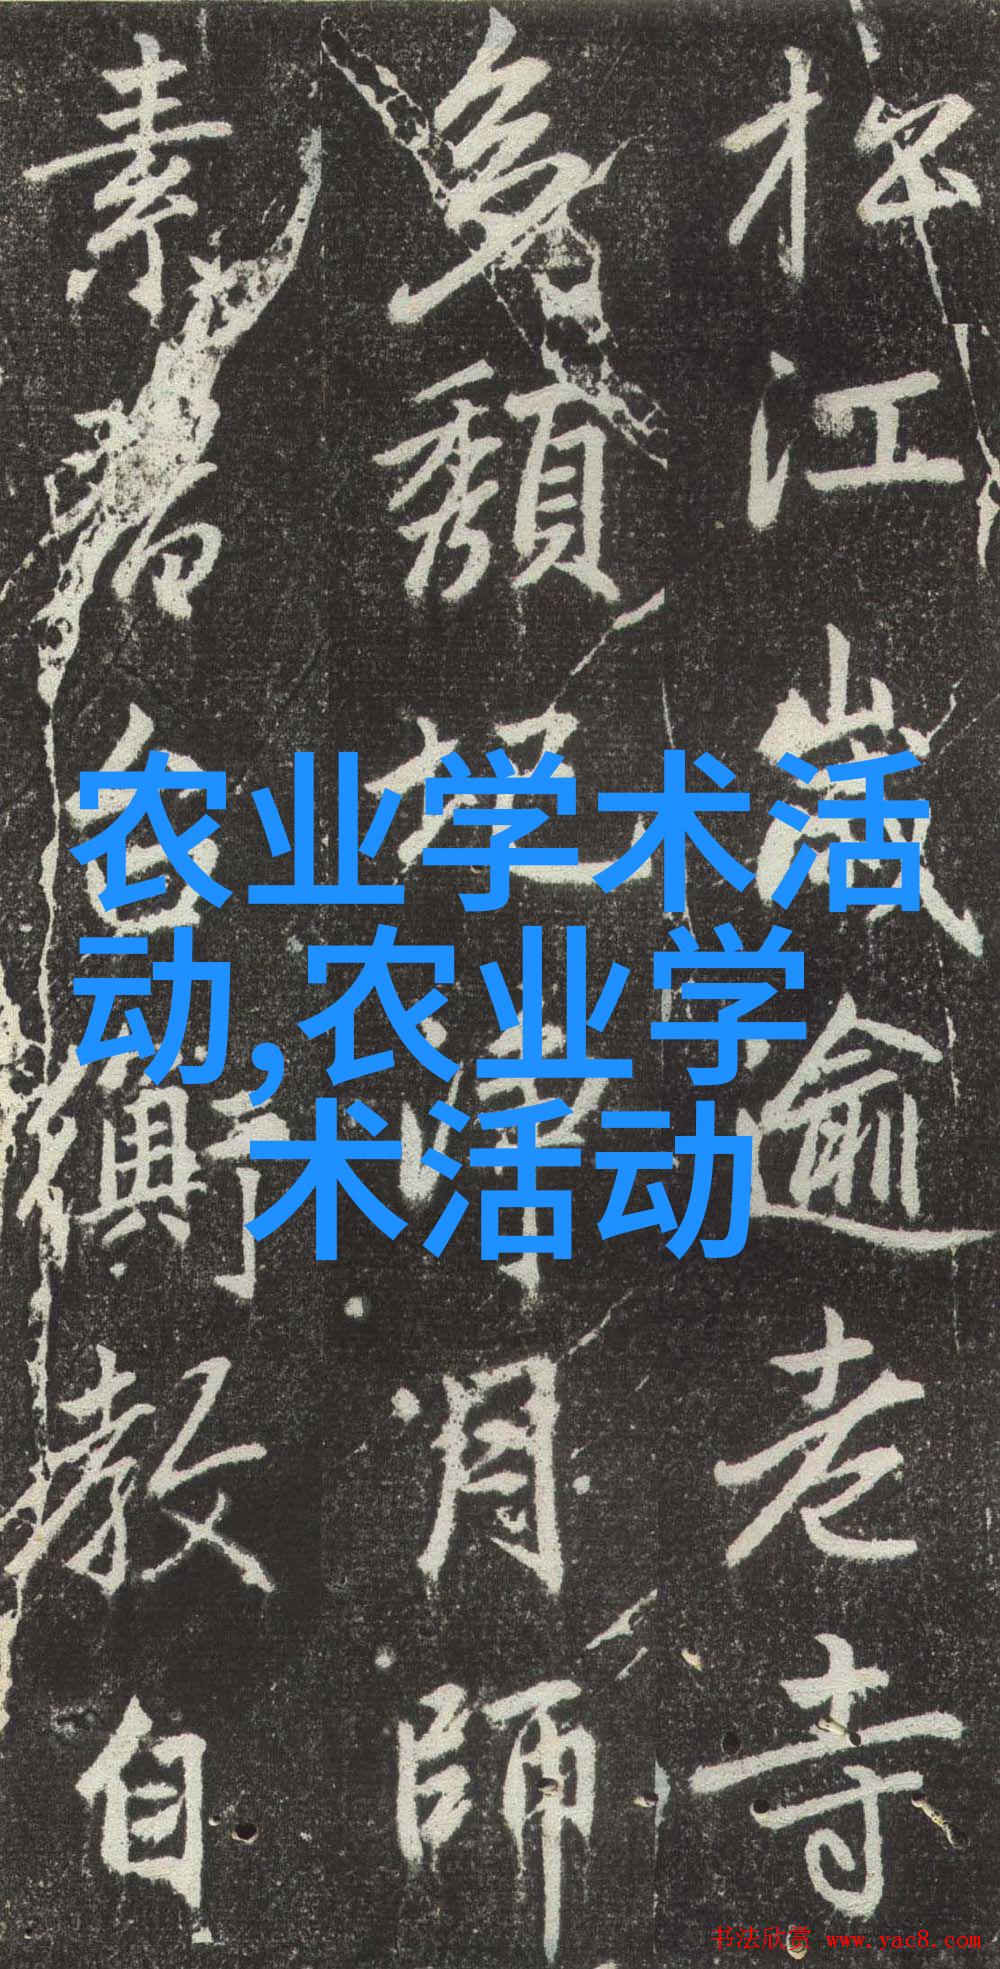 江歲逾老寺
多頹圯月師
素教自
农业学术活
动,农业学
术活动
书法欣赏 www.yac8.com